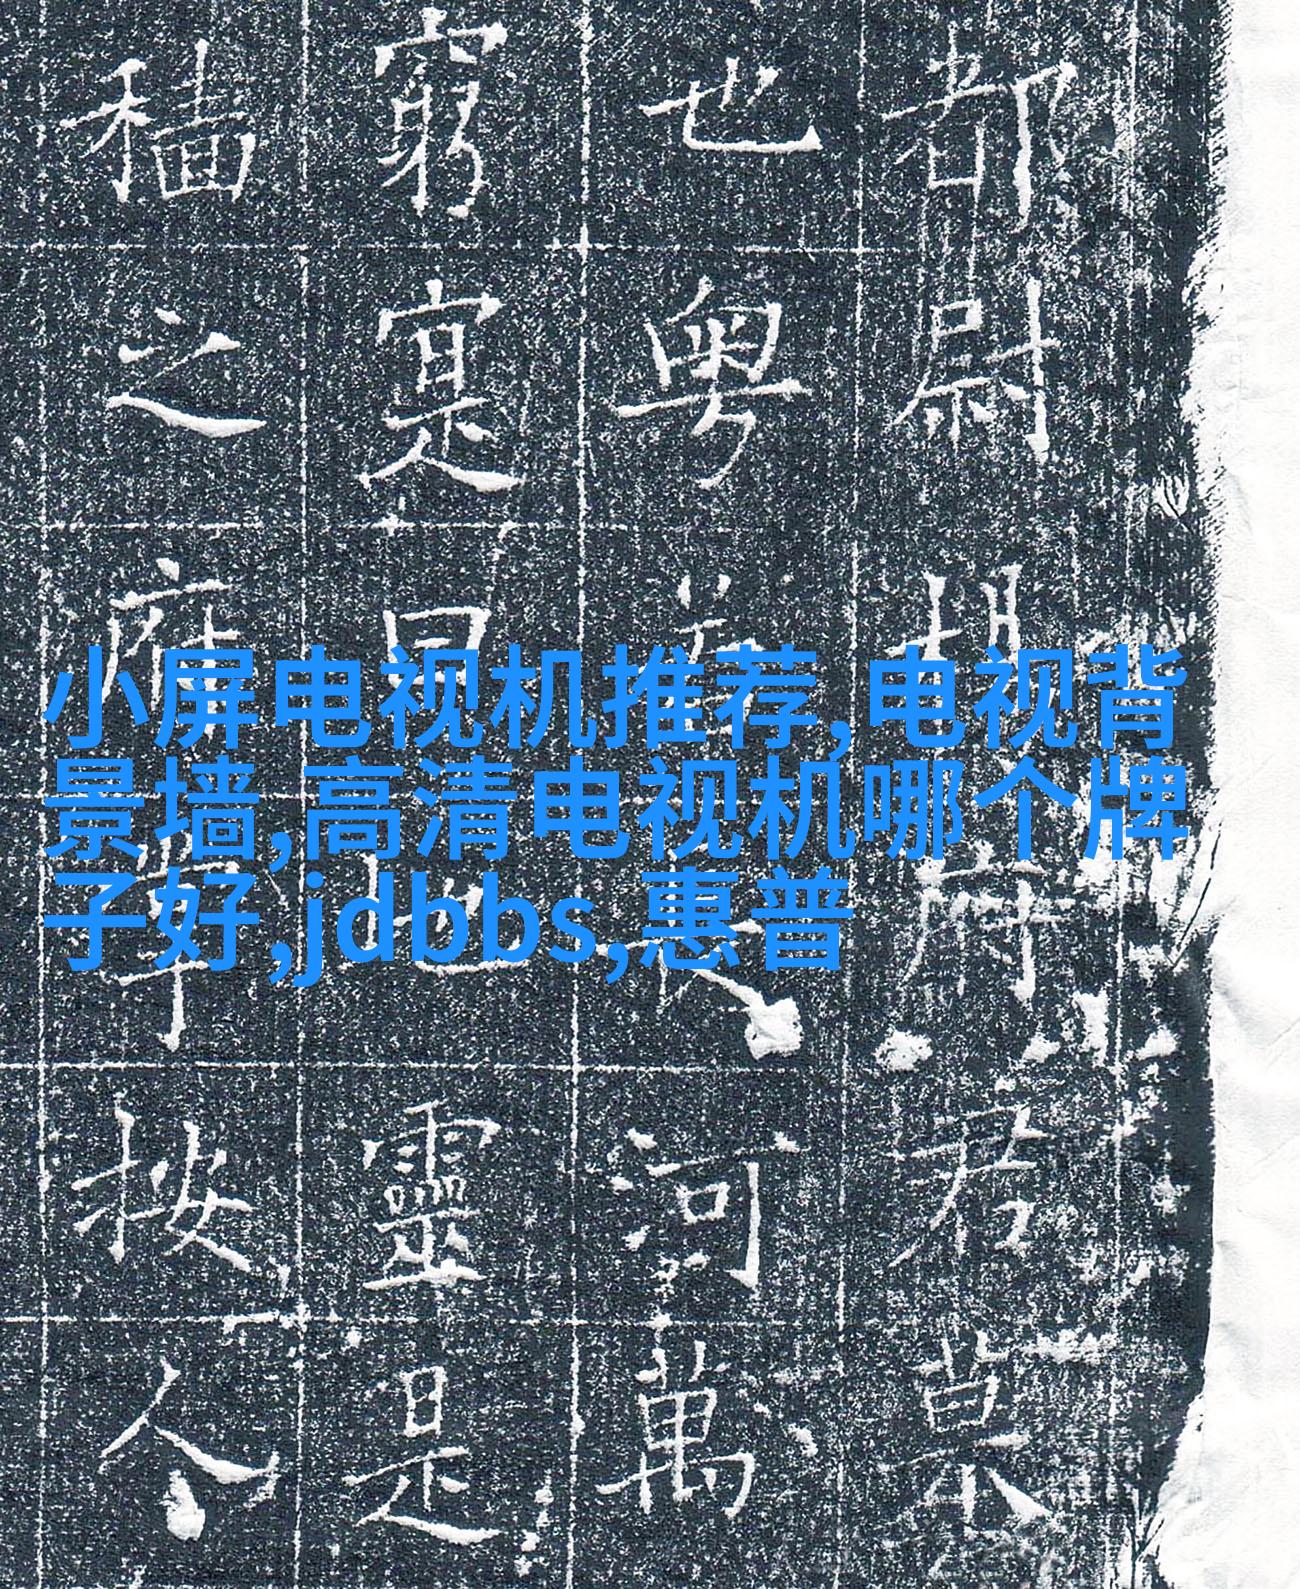 小屏电视机推荐,电视背
景墙,高清电视机哪个牌
子好,jdbbs,惠普
都尉胡府君
也粤河萬
窮寔曰地靈是
穡之府按人